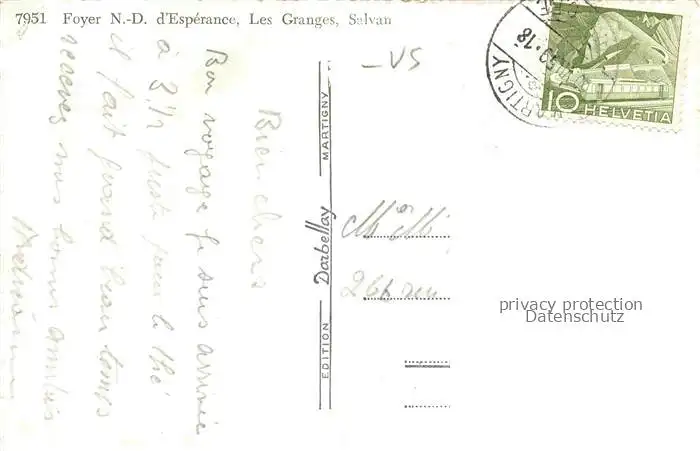 7951 Foyer N.-D. d'Espérance, Les Granges, Salvan
Bien chers
Bon voyage je suis arrivée
à 3½ juste pour le thé
il fait grand beau temps
recevez mes bonnes amitiés
EDITION Darbellay MARTIGNY
VS
MARTIGNY
10 HELVETIA
privacy protection
Datenschutz